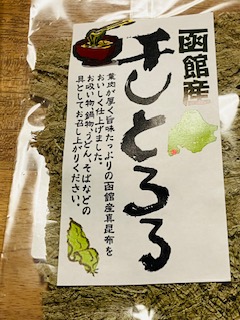 函館産
干しとろろ
葉肉が厚く旨味たっぷりの函館産真昆布を
おいしく仕上げました。
お吸い物、鍋物、うどん、そばなどの
具としてお召し上がりください。